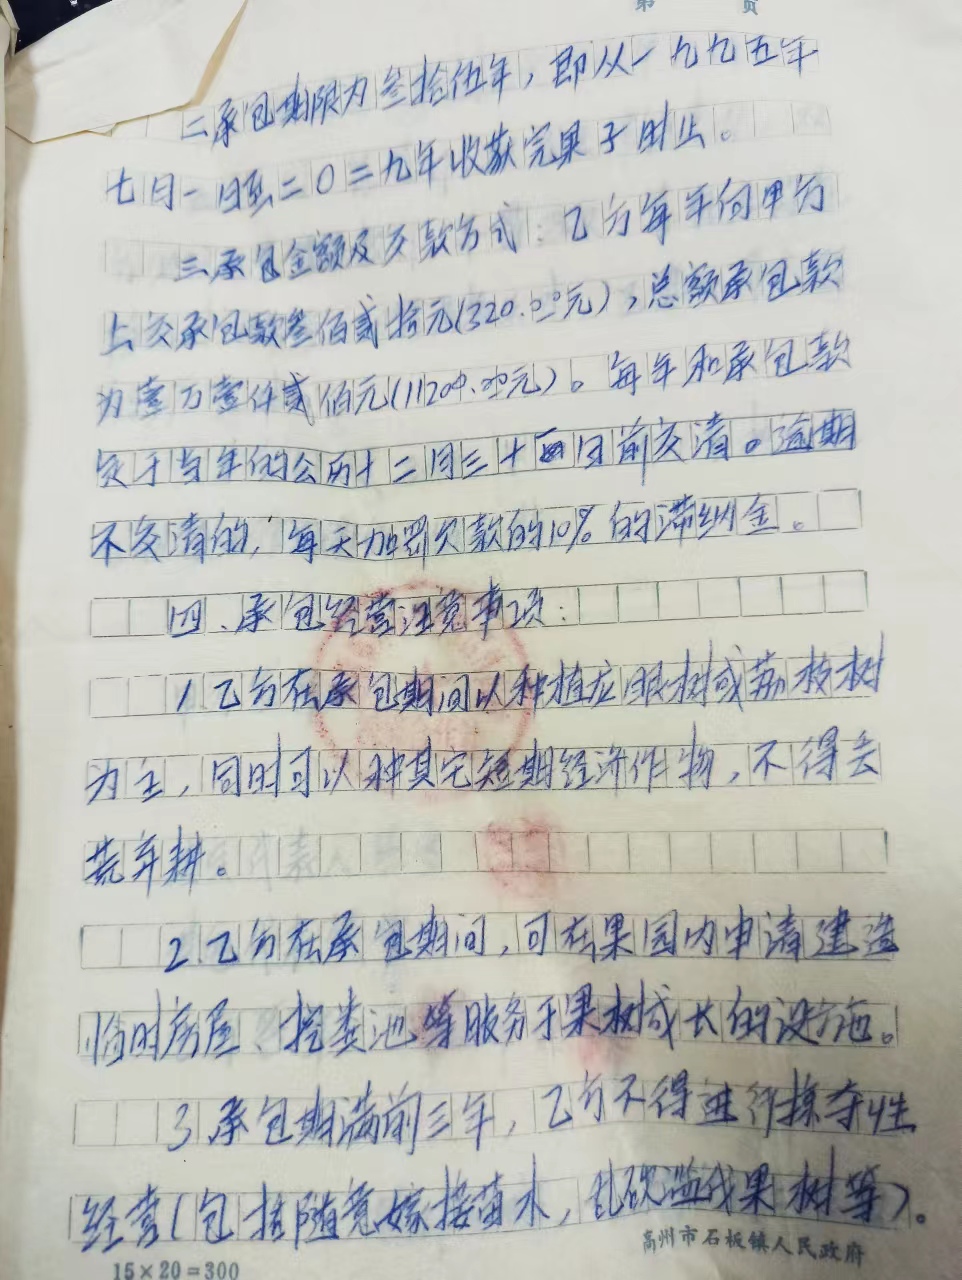 第 页
二承包期限为叁拾伍年，即从一九九五年
七月一日至二0二九年收获完果子时止。
三承包金额及交款方式：乙方每年向甲方
上交承包款叁佰贰拾元(320.00元)，总额承包款
为壹万壹仟贰佰元(11200.00元)。每年和承包款
交于当年的公历十二月三十 日前交清。逾期
不交清的，每天加罚欠款的10%的滞纳金。
四、承包经营注意事项：
1.乙方在承包期间以种植龙眼树或荔枝树
为主，同时可以种其它短期经济作物，不得去
荒弃耕。
2.乙方在承包期间，可在果园内申请建造
临时房屋、挖粪池等服务于果树成长的设施。
3承包期满前三年，乙方不得进行掠夺性
经营(包括随意嫁接苗木，乱砍滥伐果树等)。
高州市石板镇人民政府
15×20=300